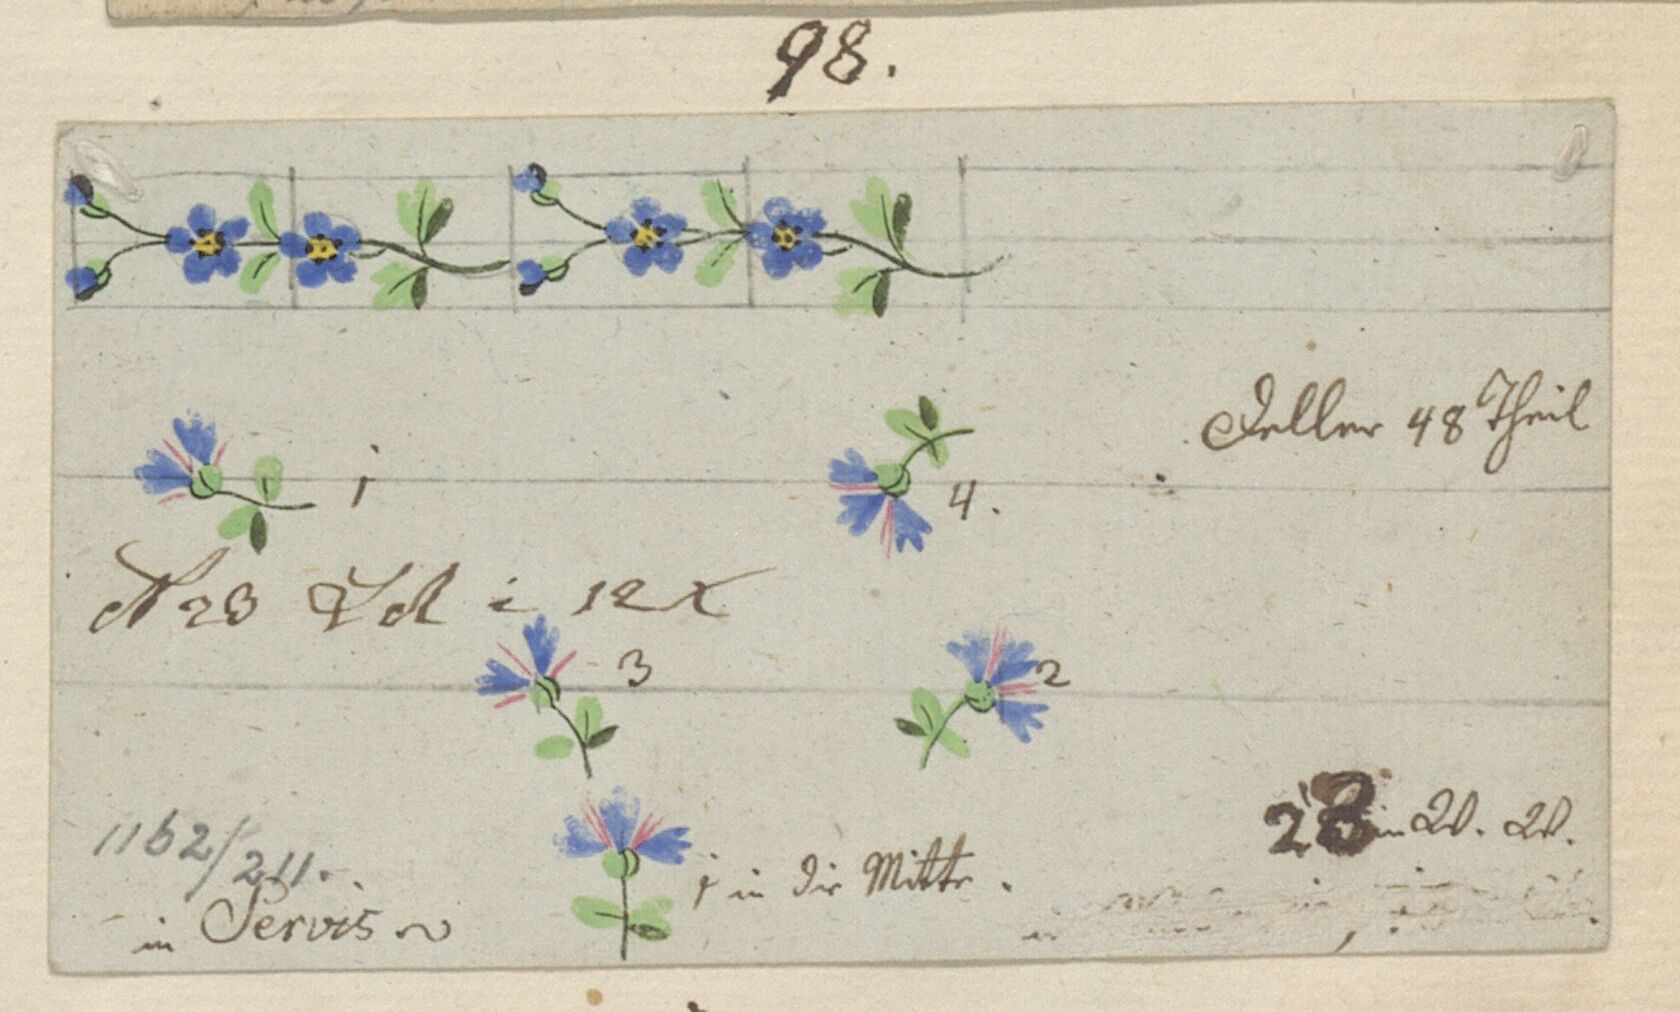 98.
Teller 48 Theil
1
4.
N 28 12 x
3
2
28 in W. W.
1162/211.
1 in die Mitte.
in Servis